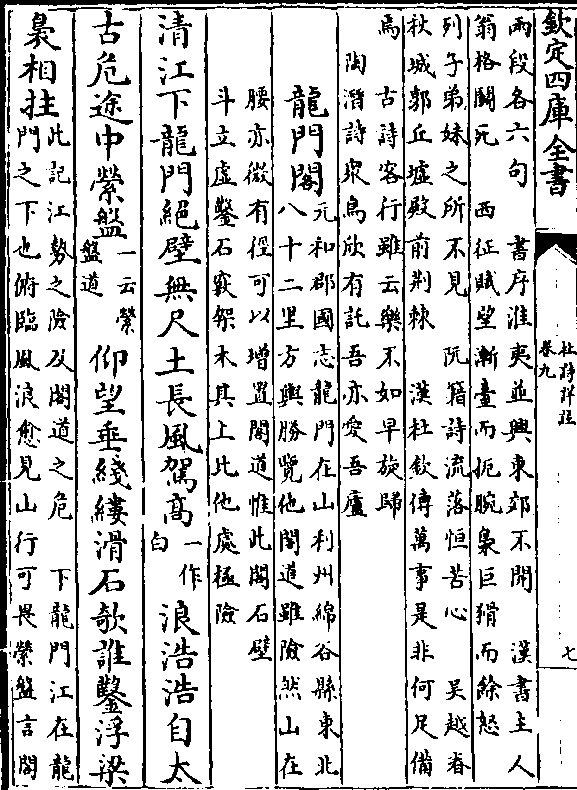 欽定四庫全書
杜詩詳註
卷九
七
兩段各六句　書序淮夷並興東郊不開　漢書主人
翁格鬭死　西征賦望漸臺而扼腕梟巨猾而餘怒
列子弟妹之所不見　阮籍詩流落恒苦心　吳越春
秋城郭丘墟殿前荆棘　漢杜欽傳萬事是非何足備
焉　古詩客行雖云樂不如早旋歸
陶潛詩衆鳥欣有託吾亦愛吾廬
龍門閣
元和郡國志龍門在山利州綿谷縣東北
八十二里方輿勝覽他閣道雖險然山在
腰亦微有徑可以增置閣道惟此閣石壁
斗立虛鑿石竅架木其上比他處極險
清江下龍門絕壁無尺土長風駕高一作白浪浩浩自太
古危途中縈盤一云縈盤道仰望垂綫縷滑石欹誰鑿浮梁
裊相拄
此記江勢之險及閣道之危　下龍門江在龍
門之下也俯臨風浪愈見山行可畏縈盤言閣